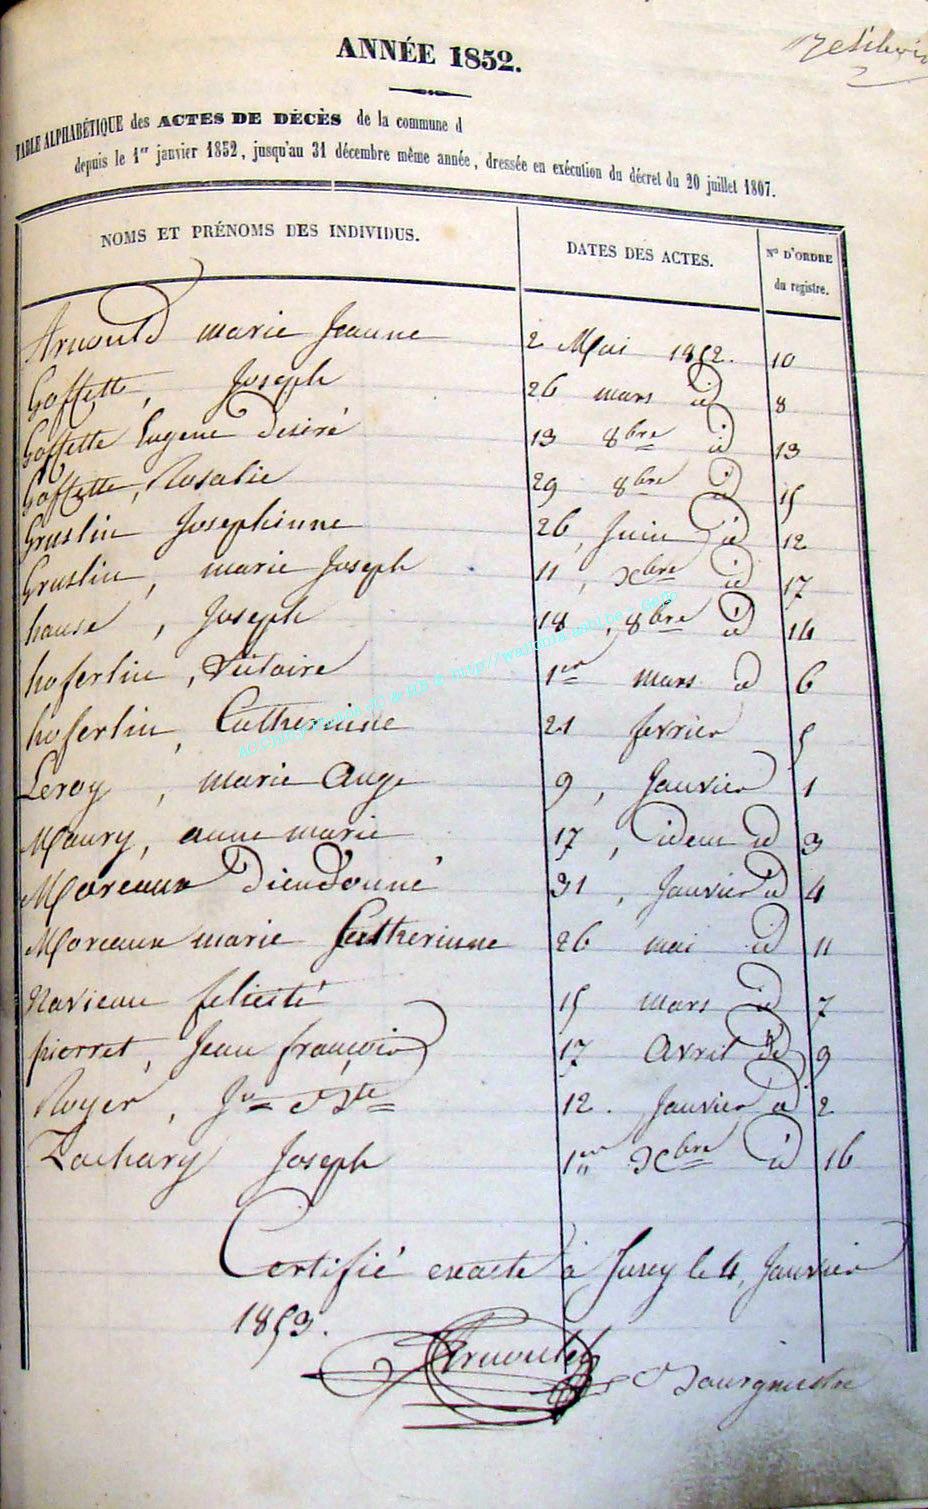 ANNÉE 1852.
TABLE ALPHABÉTIQUE des ACTES DE DÉCÈS de la commune d
depuis le 1er janvier 1852, jusqu'au 31 décembre même année, dressée en exécution du décret du 20 juillet 1807.
NOMS ET PRÉNOMS DES INDIVIDUS. DATES DES ACTES. N° D'ORDRE du registre.
Arnould marie Jeanne 2 Mai 1852. 10
Goffette, Joseph 26 mars id 8
Goffette Eugene Desiré 13 8bre id 13
Goffette, Rosalie 29 8bre id 15
Gruslin Josephinne 26, Juin id 12
Gruslin, marie Joseph 11, Xbre id 17
hause, Joseph 18, 8bre id 14
hoferlin, Victoire 1er mars id 6
hoferlin, Catherinne 21 fevrier 5
Leroy, marie Ange 9, Janvier 1
Maury, anne marie 17, idem id 3
Moreaux Dieudonné 31, Janvier id 4
Moreaux marie Catherinne 26 mai id 11
Navieau felicité 15 mars id 7
pierret, Jean françois 17 Avril id 9
Royer, Jn Bte 12. Janvier id 2
Zachary Joseph 1er Xbre id 16
Certifié exacte à Jusey le 4, Janvier
1853.
Arnould Bourgmestre